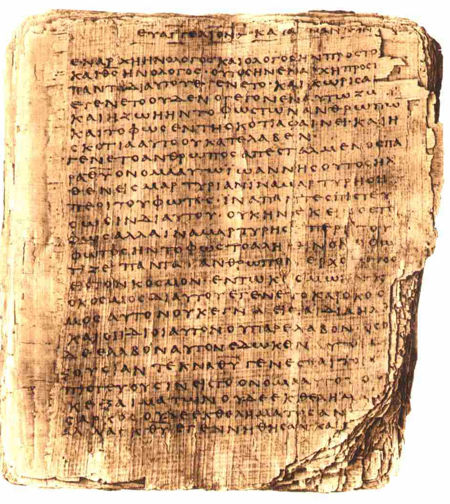 ΕΥΑΓΓΕΛΙΟΝ ΚΑΤΑ ΙΩΑΝΝΗΝ
ΕΝ ΑΡΧΗ ΗΝ Ο ΛΟΓΟϹ ΚΑΙ Ο ΛΟΓΟϹ ΗΝ ΠΡΟϹ ΤΟ
ΚΑΙ ΘϹ ΗΝ Ο ΛΟΓΟϹ ΟΥΤΟϹ ΗΝ ΕΝ ΑΡΧΗ ΠΡΟϹ
ΠΑΝΤΑ ΔΙ ΑΥΤΟΥ ΕΓΕΝΕΤΟ ΚΑΙ ΧΩΡΙϹ Α
ΕΓΕΝΕΤΟ ΟΥΔΕΝ Ο ΓΕΓΟΝΕΝ ΕΝ ΑΥΤΩ ΖΩ
ΚΑΙ Η ΖΩΗ ΗΝ ΤΟ ΦΩϹ ΤΩΝ ΑΝΘΡΩΠΩ
ΚΑΙ ΤΟ ΦΩϹ ΕΝ ΤΗ ϹΚΟΤΙΑ ΦΑΙΝΕΙ ΚΑΙ Η
ϹΚΟΤΙΑ ΑΥΤΟ ΟΥ ΚΑΤΕΛΑΒΕΝ
ΕΓΕΝΕΤΟ ΑΝΘΡΩΠΟϹ ΑΠΕϹΤΑΛΜΕΝΟϹ ΠΑ
ΡΑ ΘΥ ΟΝΟΜΑ ΑΥΤΩ ΙΩΑΝΝΗϹ ΟΥΤΟϹ ΗΛ
ΘΕΝ ΕΙϹ ΜΑΡΤΥΡΙΑΝ ΙΝΑ ΜΑΡΤΥΡΗϹΗ
ΠΕΡΙ ΤΟΥ ΦΩΤΟϹ ΙΝΑ ΠΑΝΤΕϹ ΠΙϹΤΕΥ
ϹΩϹΙΝ ΔΙ ΑΥΤΟΥ ΟΥΚ ΗΝ ΕΚΕΙΝΟϹ ΤΟ
ΦΩϹ ΑΛΛΑ ΙΝΑ ΜΑΡΤΥΡΗϹΗ ΠΕΡΙ ΤΟΥ
ΦΩΤΟϹ ΗΝ ΤΟ ΦΩϹ ΤΟ ΑΛΗΘΙΝΟΝ Ο ΦΩ
ΤΙΖΕΙ ΠΑΝΤΑ ΑΝΘΡΩΠΟΝ ΕΡΧΟΜΕΝΟ
ΕΙϹ ΤΟΝ ΚΟϹΜΟΝ ΕΝ ΤΩ ΚΟϹΜΩ
Ο ΚΟϹΜΟϹ ΔΙ ΑΥΤΟΥ ΕΓΕΝΕΤΟ ΚΑΙ Ο ΚΟϹ
ΜΟϹ ΑΥΤΟΝ ΟΥΚ ΕΓΝΩ ΕΙϹ ΤΑ ΙΔΙΑ ΗΛ
ΚΑΙ ΟΙ ΙΔΙΟΙ ΑΥΤΟΝ ΟΥ ΠΑΡΕΛΑΒΟΝ ΟϹΟΙ
ΔΕ ΕΛΑΒΟΝ ΑΥΤΟΝ ΕΔΩΚΕΝ ΑΥΤΟΙϹ
ΕΞΟΥϹΙΑΝ ΤΕΚΝΑ ΘΥ ΓΕΝΕϹΘΑΙ ΤΟΙϹ
ΠΙϹΤΕΥΟΥϹΙΝ ΕΙϹ ΤΟ ΟΝΟΜΑ ΑΥΤΟΥ Ο
ΟΥΚ ΕΞ ΑΙΜΑΤΩΝ ΟΥΔΕ ΕΚ ΘΕΛΗΜΑ
ϹΑΡΚΟϹ ΟΥΔΕ ΕΚ ΘΕΛΗΜΑΤΟϹ ΑΝ
ΑΛΛΑ ΕΚ ΘΥ ΕΓΕΝΝΗΘΗϹΑΝ ΚΑΙ